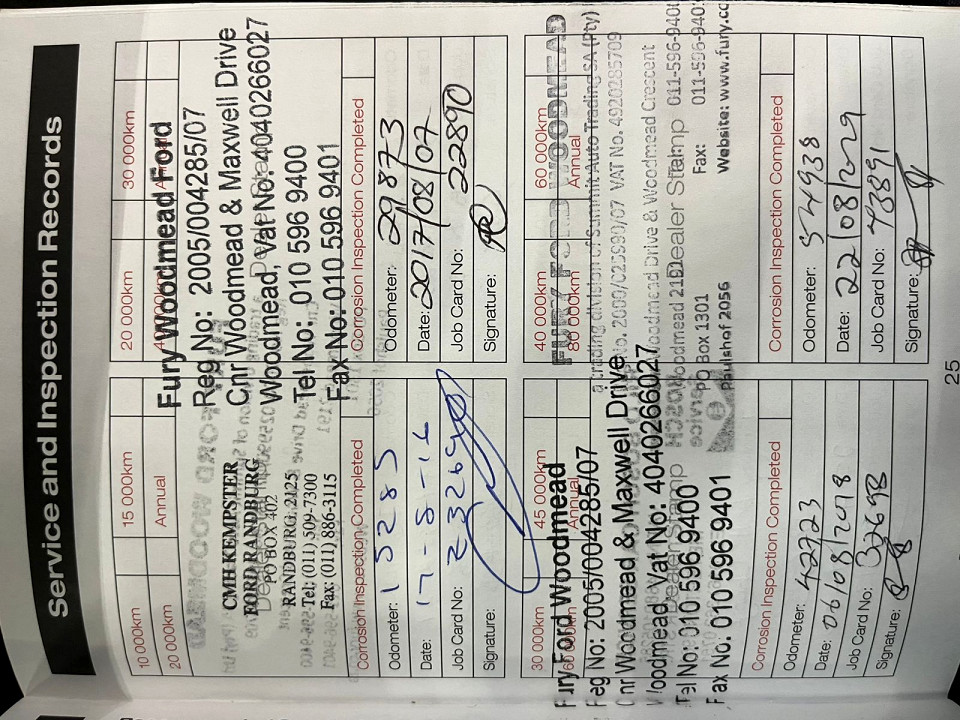 Service and Inspection Records
10 000km
15 000km
20 000km
Annual
CMH KEMPSTER
FORD RANDBURG
PO BOX 402
RANDBURG 2125
Tel: (011) 509-7300
Fax: (011) 886-3115
Corrosion Inspection Completed
Odometer: 15285
Date: 17-8-16
Job Card No:
Signature:
20 000km
30 000km
Fury Woodmead Ford
Reg No: 2005/004285/07
Cnr Woodmead & Maxwell Drive
Woodmead, Vat No: 4040266027
Tel No: 010 596 9400
Fax No: 010 596 9401
Corrosion Inspection Completed
Odometer: 29873
Date: 2017/08/07
Job Card No: 22890
Signature:
30 000km
45 000km
60 000km
Annual
Fury Ford Woodmead
Reg No: 2005/004285/07
Cnr Woodmead & Maxwell Drive
Woodmead, Vat No: 4040266027
Tel No: 010 596 9400
Fax No. 010 596 9401
Dealer Stamp
Corrosion Inspection Completed
Odometer: 42723
Date: 06/08/2018
Job Card No: 32693
Signature:
40 000km
60 000km
80 000km
Annual
FURY FORD WOODMEAD
a trading division of Summit Auto Trading SA (Pty)
VAT No. 4920285709
Woodmead Drive & Woodmead Crescent
Woodmead Dealer Stamp 011-596-940
PO Box 1301 Fax: 011-596-940
Paulshof 2056 Website: www.fury.co
Corrosion Inspection Completed
Odometer: 54938
Date: 22/08/2029
Job Card No: 43891
Signature:
25